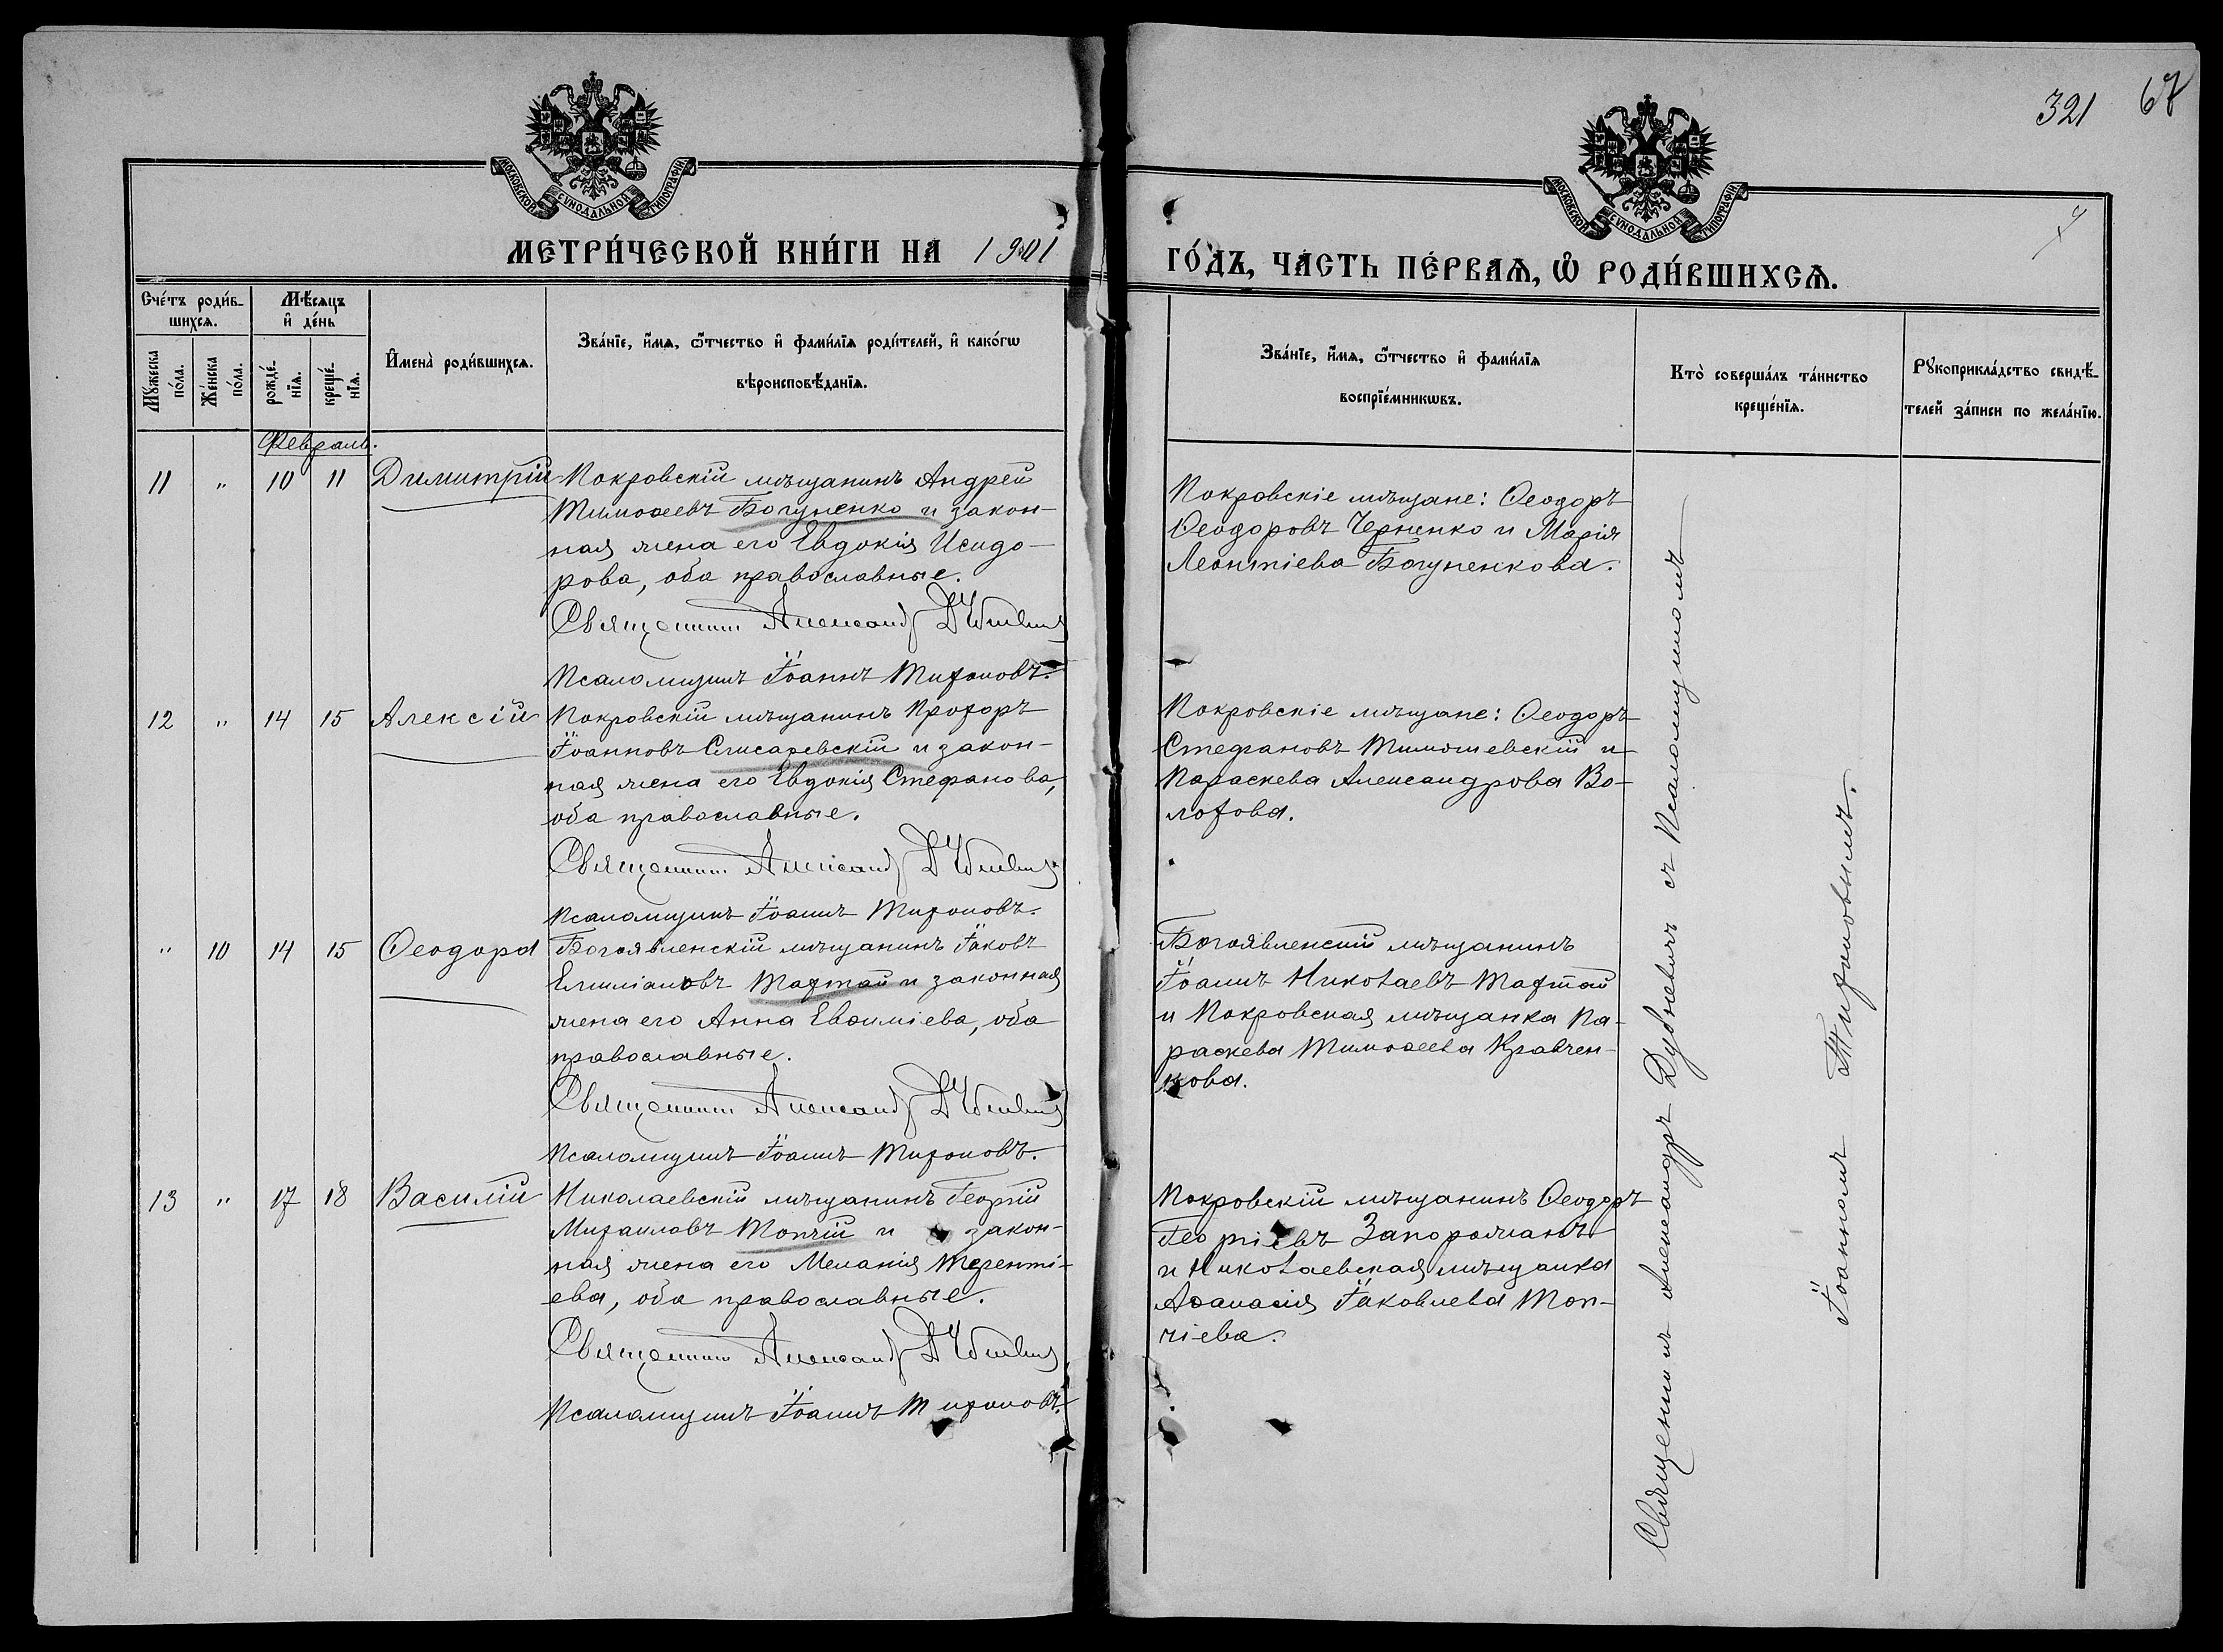 321 67
МОСКОВСКОЙ СѴНОДАЛЬНОЙ ТИПОГРАФІИ
МОСКОВСКОЙ СѴНОДАЛЬНОЙ ТИПОГРАФІИ
МЕТРИ́ЧЕСКОЙ КНИ́ГИ НА 1901
ГО́ДЪ, ЧАСТЬ ПЕ́РВАѦ, Ѽ РОДИ́ВШИХСѦ.
Сче́тъ роди́в-
шихсѧ.
Мꙋ́жеска
по́ла.
Же́нска
по́ла.
Мѣ́сѧцъ
и҆ де́нь
рожде́-
нїѧ.
креще́-
нїѧ.
И҆мена̀ роди́вшихсѧ.
Зва́нїе, и҆́мѧ, ѻ҆́тчество и҆ фами́лїѧ роди́телей, и҆ како́гѡ
вѣроисповѣ́данїѧ.
Зва́нїе, и҆́мѧ, ѻ҆́тчество и҆ фами́лїѧ
воспрїе́мникѡвъ.
Кто̀ соверша́лъ та́инство
креще́нїѧ.
Рꙋкоприкла́дство свидѣ́-
телей за́писи по жела́нїю.
Февраль.
11 " 10 11 Димитрій
Покровскій мѣщанинъ Андрей
Тимоѳеевъ Богуненко и закон-
ная жена его Евдокія Исидо-
рова, оба православные.
Священникъ Александръ Дубневичъ
Псаломщикъ Іоаннъ Тихоновъ.
Покровскіе мѣщане: Ѳеодоръ
Ѳеодоровъ Черненко и Марія
Леонтіева Богуненкова.
12 " 14 15 Алексій
Покровскій мѣщанинъ Прохоръ
Іоанновъ Слисаревскій и закон-
ная жена его Евдокія Стефанова,
оба православные.
Священникъ Александръ Дубневичъ
Псаломщикъ Іоаннъ Тихоновъ.
Покровскіе мѣщане: Ѳеодоръ
Стефановъ Тимошевскій и
Параскева Александрова Во-
лохова.
" 10 14 15 Ѳеодора
Богоявленскій мѣщанинъ Іаковъ
Емиліановъ Тафтай и законная
жена его Анна Евѳиміева, оба
православные.
Священникъ Александръ Дубневичъ
Псаломщикъ Іоаннъ Тихоновъ.
Богоявленскій мѣщанинъ
Іоаннъ Николаевъ Тафтай
и Покровская мѣщанка Па-
раскева Тимоѳеева Кравчен-
кова.
13 " 17 18 Василій
Николаевскій мѣщанинъ Георгій
Михаиловъ Топчій и закон-
ная жена его Меланія Теренті-
ева, оба православные.
Священникъ Александръ Дубневичъ
Псаломщикъ Іоаннъ Тихоновъ.
Покровскій мѣщанинъ Ѳеодоръ
Георгіевъ Запорожанъ
и Николаевская мѣщанка
Аѳанасія Іаковлева Топ-
чіева.
Священникъ Александръ Дубневичъ съ Псаломщикомъ
Іоанномъ Тихоновымъ.